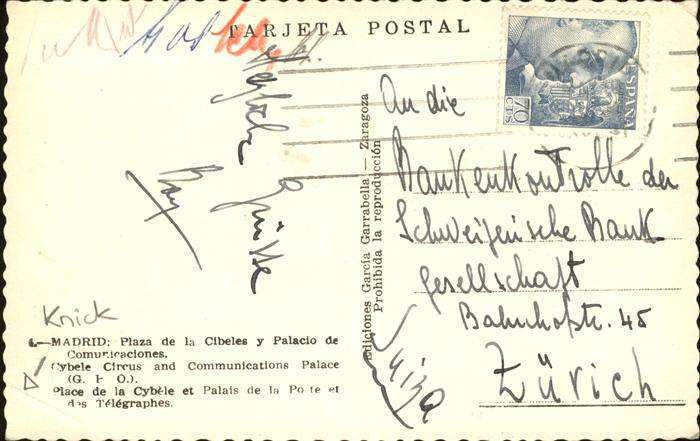 TARJETA POSTAL
ESPAÑA
70
CTS
An die
Bankenkontrolle der
Schweizerische Bank
gesellschaft
Bahnhofstr. 45
Zürich
Suiza
Grüsse
Knick
Ediciones García Garrabella — Zaragoza
Prohibida la reproducción
4.—MADRID: Plaza de la Cibeles y Palacio de
Comunicaciones.
Cybele Circus and Communications Palace
(G. P. O.).
Place de la Cybèle et Palais de la Poste et
des Télégraphes.